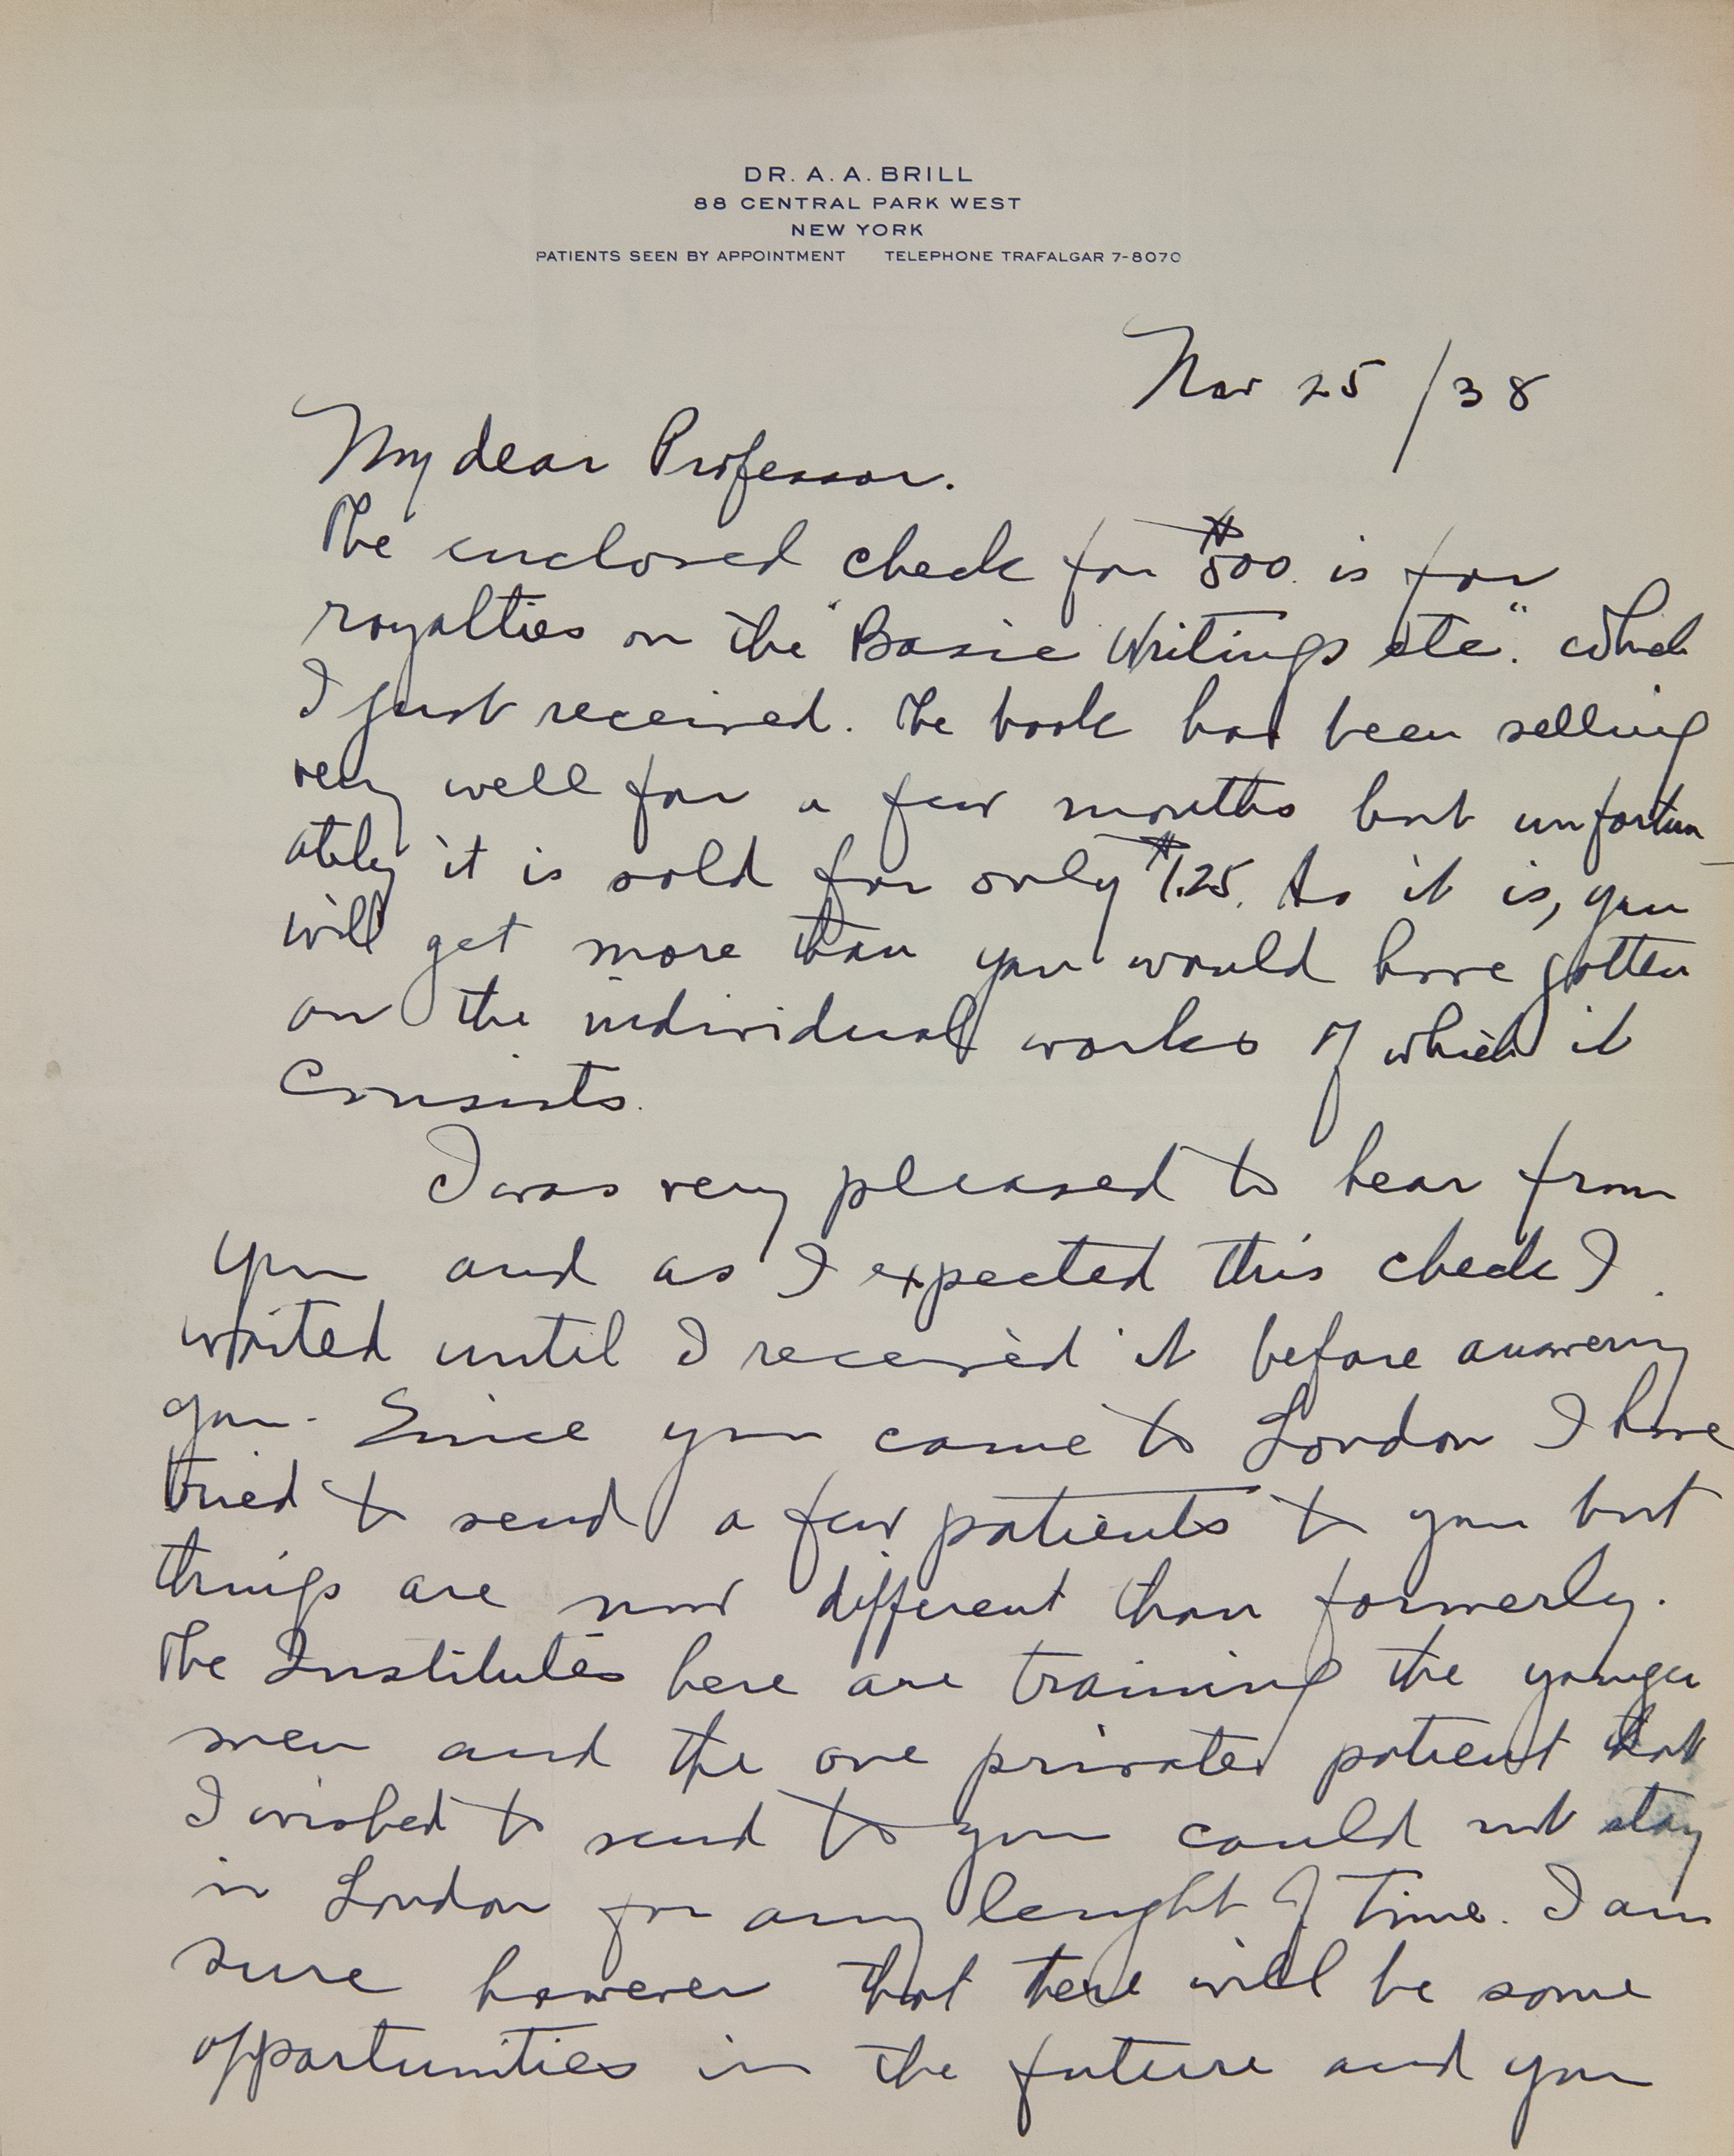 DR. A. A. BRILL
88 CENTRAL PARK WEST
NEW YORK
PATIENTS SEEN BY APPOINTMENT TELEPHONE TRAFALGAR 7-8070
Nov 25 / 38
My dear Professor.
The enclosed check for $500. is for
royalties on the "Basic Writings etc." which
I just received. The book has been selling
very well for a few months but unfortun
ately it is sold for only $1.25. As it is, you
will get more than you would have gotten
on the individual works of which it
consists.
I was very pleased to hear from
you and as I expected this check I
waited until I received it before answering
you. Since you came to London I have
tried to send a few patients to you but
things are now different than formerly.
The Institutes here are training the younger
men and the one private patient that
I wished to send to you could not stay
in London for any lenght of time. I am
sure however that there will be some
opportunities in the future and you